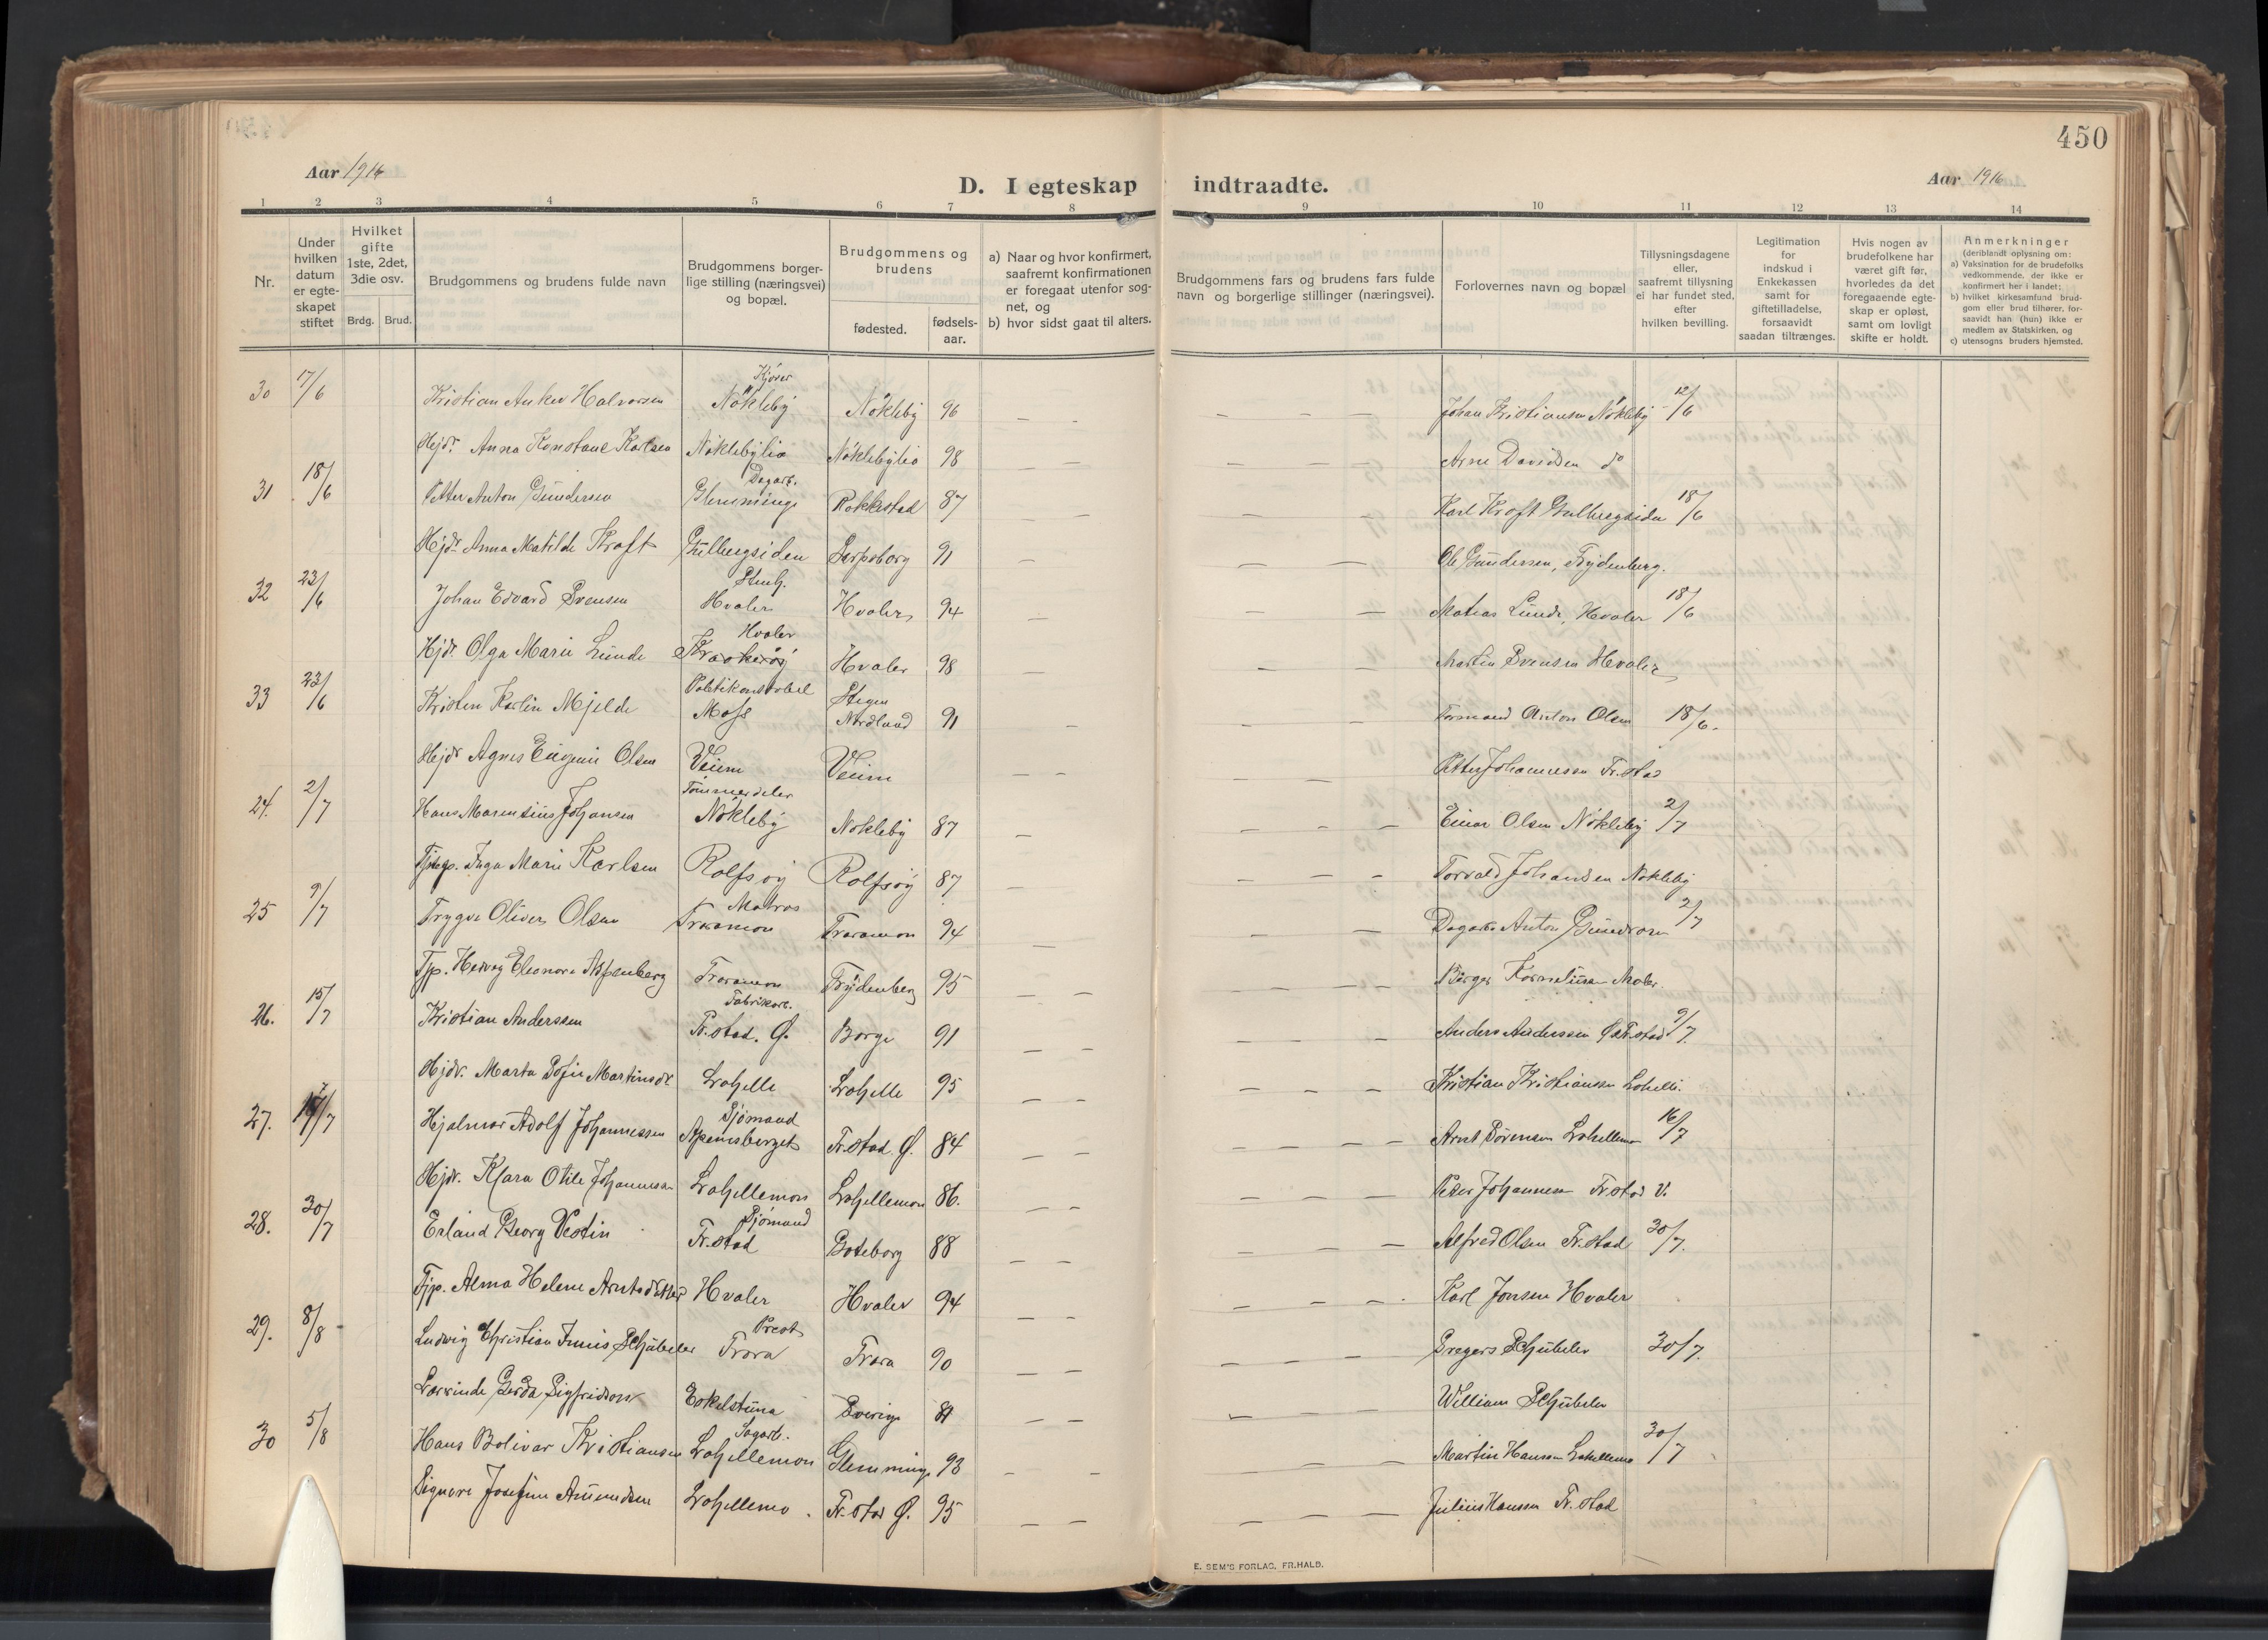 450
Aar 1916
D. I egteskap indtraadte.
Aar 1916
1 2 3 4 5 6 7 8 9 10 11 12 13 14
Nr.
Under hvilken datum er egteskapet stiftet
Hvilket gifte 1ste, 2det, 3die osv.
Brdg. Brud.
Brudgommens og brudens fulde navn
Brudgommens borgerlige stilling (næringsvei) og bopæl.
Brudgommens og brudens
fødested.
fødselsaar.
a) Naar og hvor konfirmert, saafremt konfirmationen er foregaat utenfor sognet, og
b) hvor sidst gaat til alters.
Brudgommens fars og brudens fars fulde navn og borgerlige stillinger (næringsvei).
Forlovernes navn og bopæl
Tillysningsdagene eller, saafremt tillysning ei har fundet sted, efter hvilken bevilling.
Legitimation for indskud i Enkekassen samt for giftetilladelse, forsaavidt saadan tiltrænges.
Hvis nogen av brudefolkene har været gift før, hvorledes da det foregaaende egteskap er opløst, samt om lovligt skifte er holdt.
Anmerkninger (deriblandt oplysning om:
a) Vaksination for de brudefolks vedkommende, der ikke er konfirmert her i landet;
b) hvilket kirkesamfund brudgom eller brud tilhører, forsaavidt han (hun) ikke er medlem av Statskirken, og
c) utensogns bruders hjemsted.
30 17/6 Kristian Anker Halvorsen Kjører Nökleby Nökleby 96 — — — — — Johan Kristiansen Nökleby 12/6
Hjdr. Anna Konstanse Karlsen Nöklebylia Nöklebylia 98 — — — — — Arne Davidsen do
31 18/6 Petter Anton Gundersen Dagarb. Glemminge Rakkestad 87 — — — — Karl Kraft Gulbergsiden 18/6
Hjdr. Anna Matilde Kraft Gulbergsiden Sarpsborg 91 — — — Ole Gundersen, Frydenberg.
32 23/6 Johan Edvard Svensen Stenh. Hvaler Hvaler 94 — — — Matias Lunde, Hvaler 18/6
Hjdr. Olga Marie Lunde Hvaler Kraakerøy Hvaler 98 — — Martin Svensen Hvaler
33 23/6 Kristen Karlin Mjelde Politikonstabel Moss Stegen Nordland 91 — — — Tormand Anton Olsen 18/6.
Hjdr Agnes Eugenie Olsen Veum Veum — — — — Petter Johannessen Fr.stad
24. 2/7 Hans Marensius Johansen Tømmerdeler Nökleby Nökleby 87 — — — — Einar Olsen Nökleby 2/7
Tjngp. Inga Marie Karlsen Rolfsøy Rolfsøy 87 — — — — Torvald Johansen Nökleby
25 9/7 Trygve Oliver Olsen Matros Traramon Traramon 94 — — — Dagarb. Anton Gundersen 2/7
Tjp. Hedvig Eleonore Aspenberg Traramon Frydenberg 95 — — — — — Birger Kornelius Maler.
26. 15/7 Kristian Anderssen Fabrikarb. Fr.stad. Ø. Borge 91 — — — — — Anders Anderssen Ø.Fr.stad 9/7.
Hjdr. Marta Sofie Martinsdt Lahelle Lahelle 95 — — — — — Kristian Kristiansen Lahelle.
27. 17/7 Hjalmar Adolf Johannessen Sjømand Apenesberget Fr.stad. Ø. 84 — — — — — — Arnt Sørensen Lahellemon 16/7
Hjdr. Klara Otilie Johannesen Lahellemon Lahellemon 86. — — — — — Peder Johannesen Fr.stad V.
28. 30/7 Erland Georg Vestin Sjømand Fr.stad Goteborg 88 — — — — — Alfred Olsen Fr.stad 30/7.
Tjp. Alma Helene Arntsdatter Hvaler Hvaler 94 — — — — — Karl Jensen Hvaler
29. 8/8 Ludvig Christian Innis Schübeler Prest Trara Trara 90 — — — — — Gregers Schübeler 30/7.
Larsinde Gerda Sigfridson Eskilstuna Sverige 87 — — — — — William Schübeler
30 5/8 Hans Bolivar Kristiansen Sagarb. Lahellemon Glemminge 93 — — — — — Martin Hansen Lahellemo 30/7
Signora Josefine Amundsen Lahellemo. Fr.stad Ø. 95 — — — — — Julius Hansen Fr.stad
E. SEM'S FORLAG, FR.HALD.